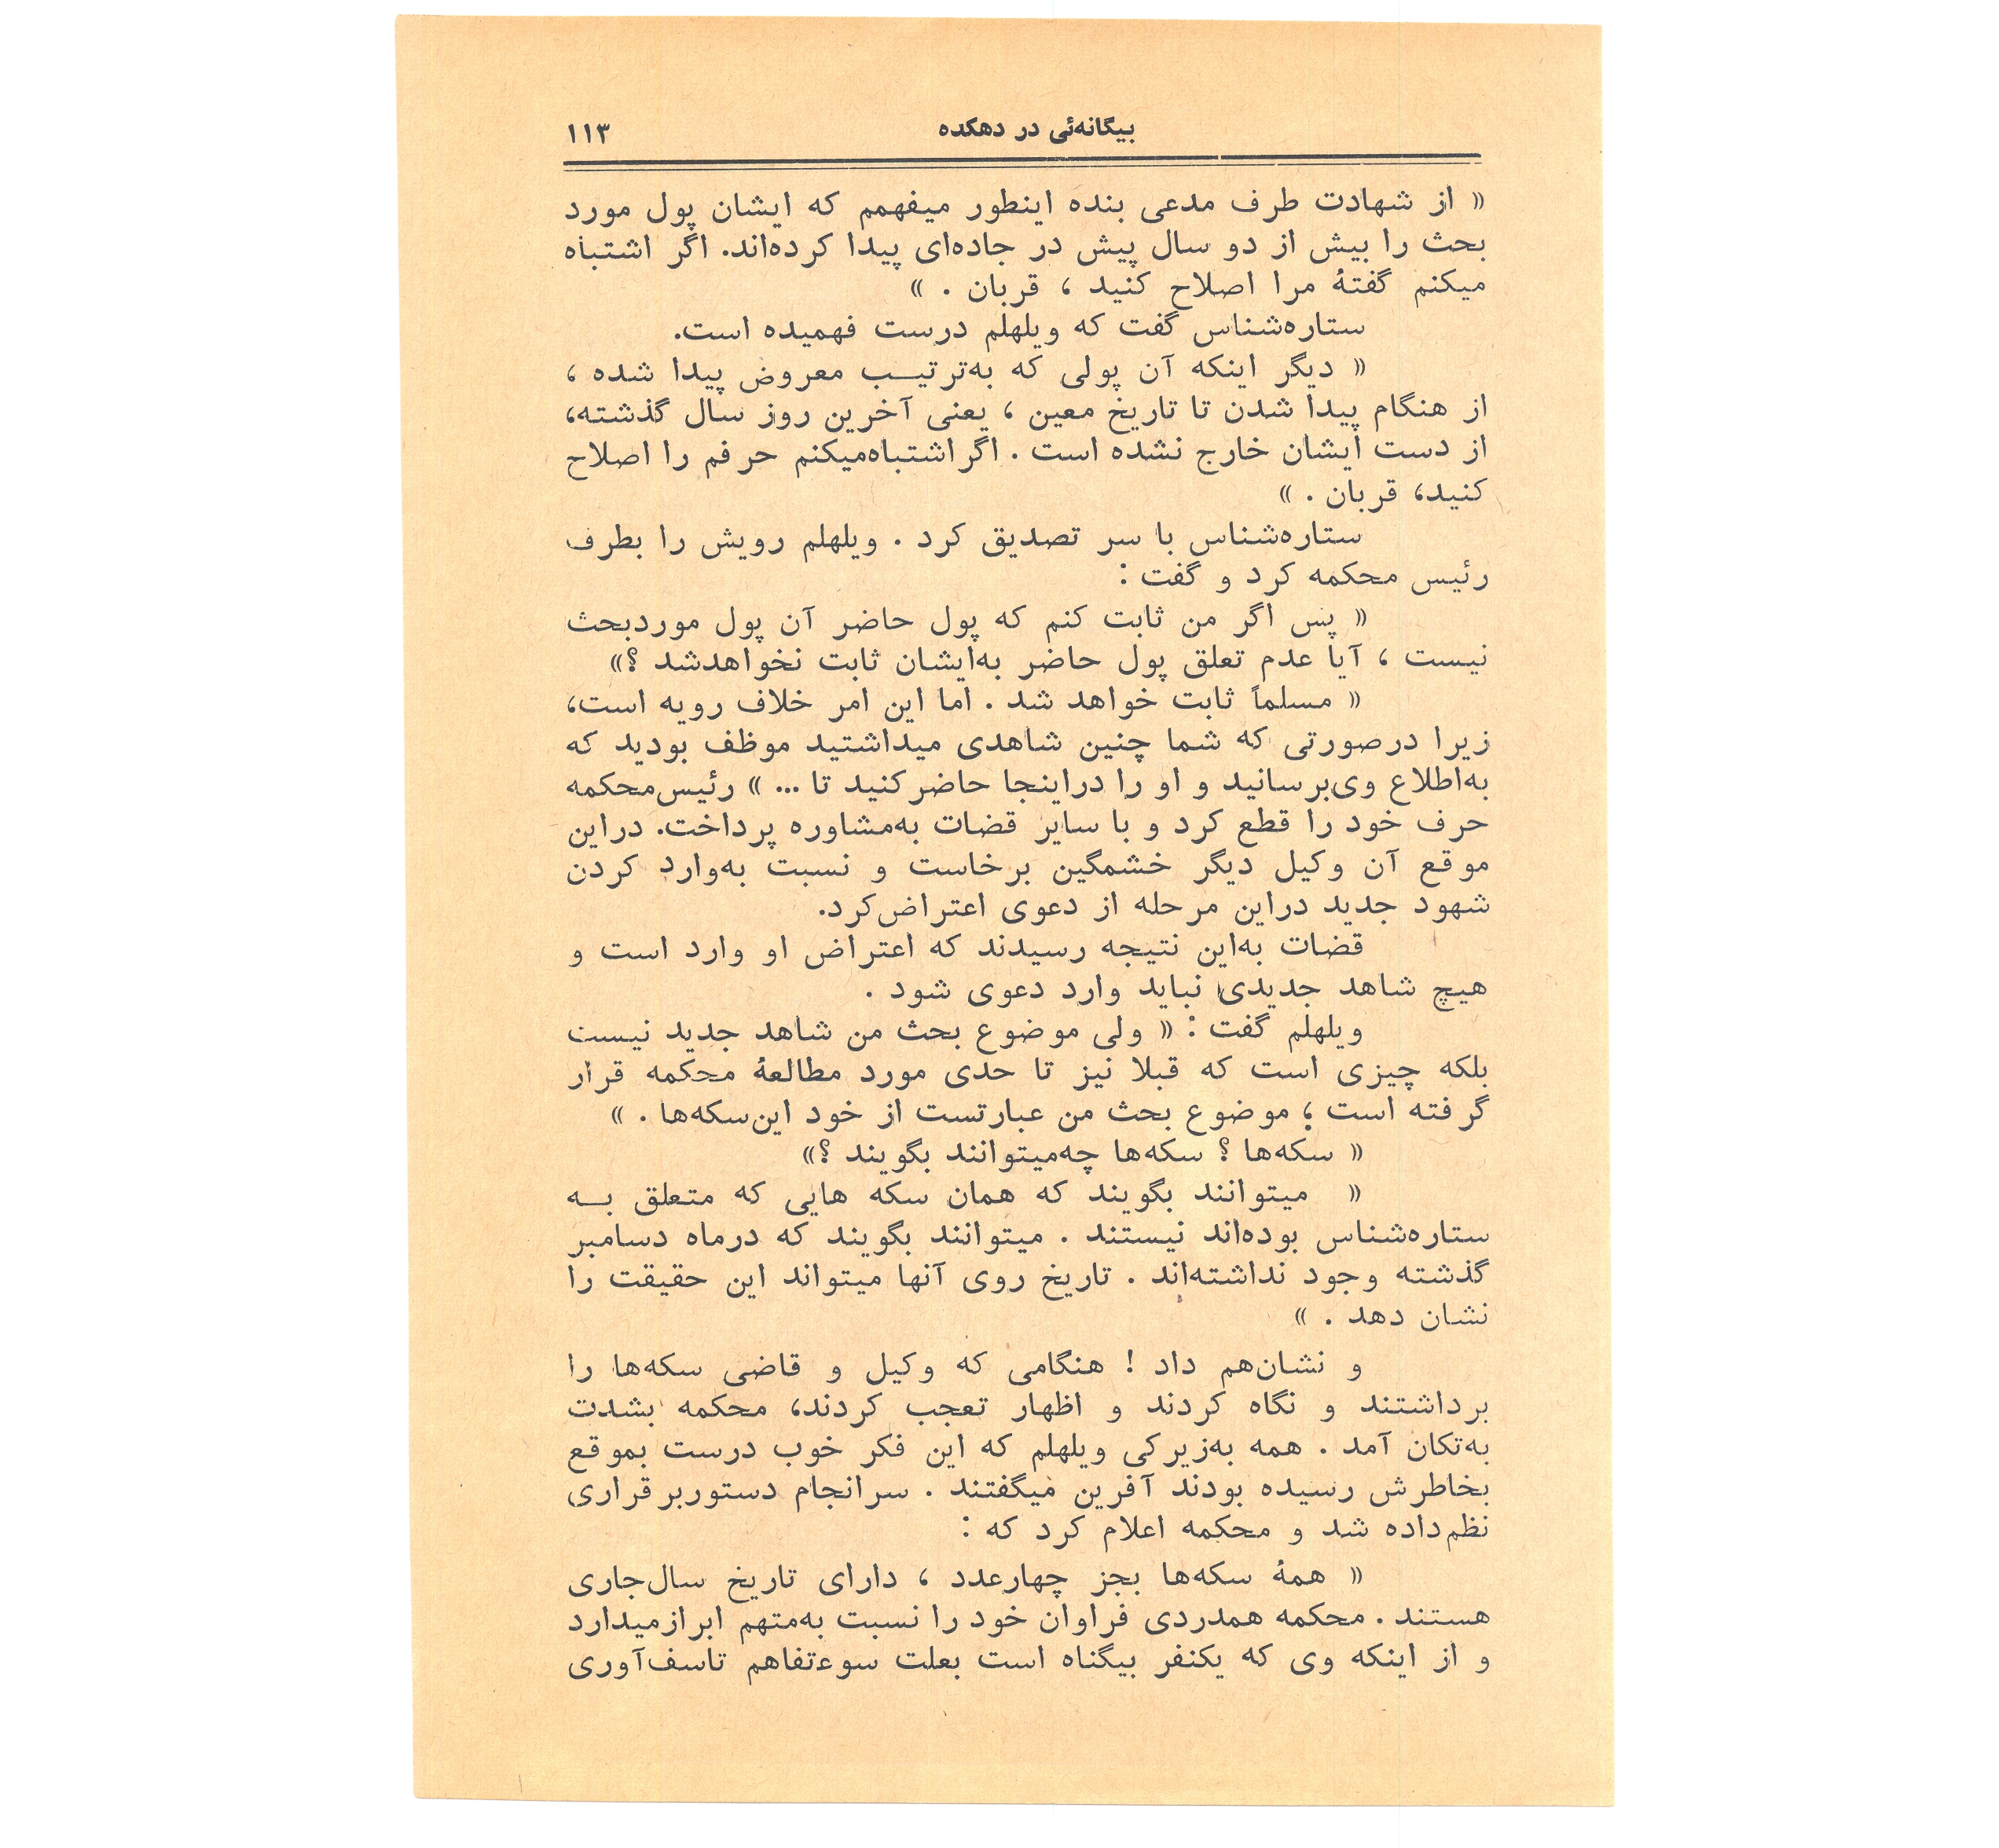 بیگانه‌ئی در دهکده
۱۱۳
« از شهادت طرف مدعی بنده اینطور میفهمم که ایشان پول مورد
بحث را بیش از دو سال پیش در جاده‌ای پیدا کرده‌اند. اگر اشتباه
میکنم گفتهٔ مرا اصلاح کنید ، قربان . »
ستاره‌شناس گفت که ویلهلم درست فهمیده است.
« دیگر اینکه آن پولی که به‌ترتیب معروض پیدا شده ،
از هنگام پیدا شدن تا تاریخ معین ، یعنی آخرین روز سال گذشته،
از دست ایشان خارج نشده است . اگر اشتباه‌میکنم حرفم را اصلاح
کنید، قربان . »
ستاره‌شناس با سر تصدیق کرد . ویلهلم رویش را بطرف
رئیس محکمه کرد و گفت :
« پس اگر من ثابت کنم که پول حاضر آن پول موردبحث
نیست ، آیا عدم تعلق پول حاضر به‌ایشان ثابت نخواهدشد ؟»
« مسلماً ثابت خواهد شد . اما این امر خلاف رویه است،
زیرا درصورتی که شما چنین شاهدی میداشتید موظف بودید که
به‌اطلاع وی‌برسانید و او را دراینجا حاضرکنید تا ... » رئیس‌محکمه
حرف خود را قطع کرد و با سایر قضات به‌مشاوره پرداخت. دراین
موقع آن وکیل دیگر خشمگین برخاست و نسبت به‌وارد کردن
شهود جدید دراین مرحله از دعوی اعتراض‌کرد.
قضات به‌این نتیجه رسیدند که اعتراض او وارد است و
هیچ شاهد جدیدی نباید وارد دعوی شود .
ویلهلم گفت : « ولی موضوع بحث من شاهد جدید نیست
بلکه چیزی است که قبلا نیز تا حدی مورد مطالعهٔ محکمه قرار
گرفته است ؛ موضوع بحث من عبارتست از خود این‌سکه‌ها . »
« سکه‌ها ؟ سکه‌ها چه‌میتوانند بگویند ؟»
« میتوانند بگویند که همان سکه هایی که متعلق به
ستاره‌شناس بوده‌اند نیستند . میتوانند بگویند که درماه دسامبر
گذشته وجود نداشته‌اند . تاریخ روی آنها میتواند این حقیقت را
نشان دهد . »
و نشان‌هم داد ! هنگامی که وکیل و قاضی سکه‌ها را
برداشتند و نگاه کردند و اظهار تعجب کردند، محکمه بشدت
به‌تکان آمد . همه به‌زیرکی ویلهلم که این فکر خوب درست بموقع
بخاطرش رسیده بودند آفرین میگفتند . سرانجام دستوربرقراری
نظم‌داده شد و محکمه اعلام کرد که :
« همهٔ سکه‌ها بجز چهارعدد ، دارای تاریخ سال‌جاری
هستند . محکمه همدردی فراوان خود را نسبت به‌متهم ابرازمیدارد
و از اینکه وی که یکنفر بیگناه است بعلت سوءتفاهم تاسف‌آوری